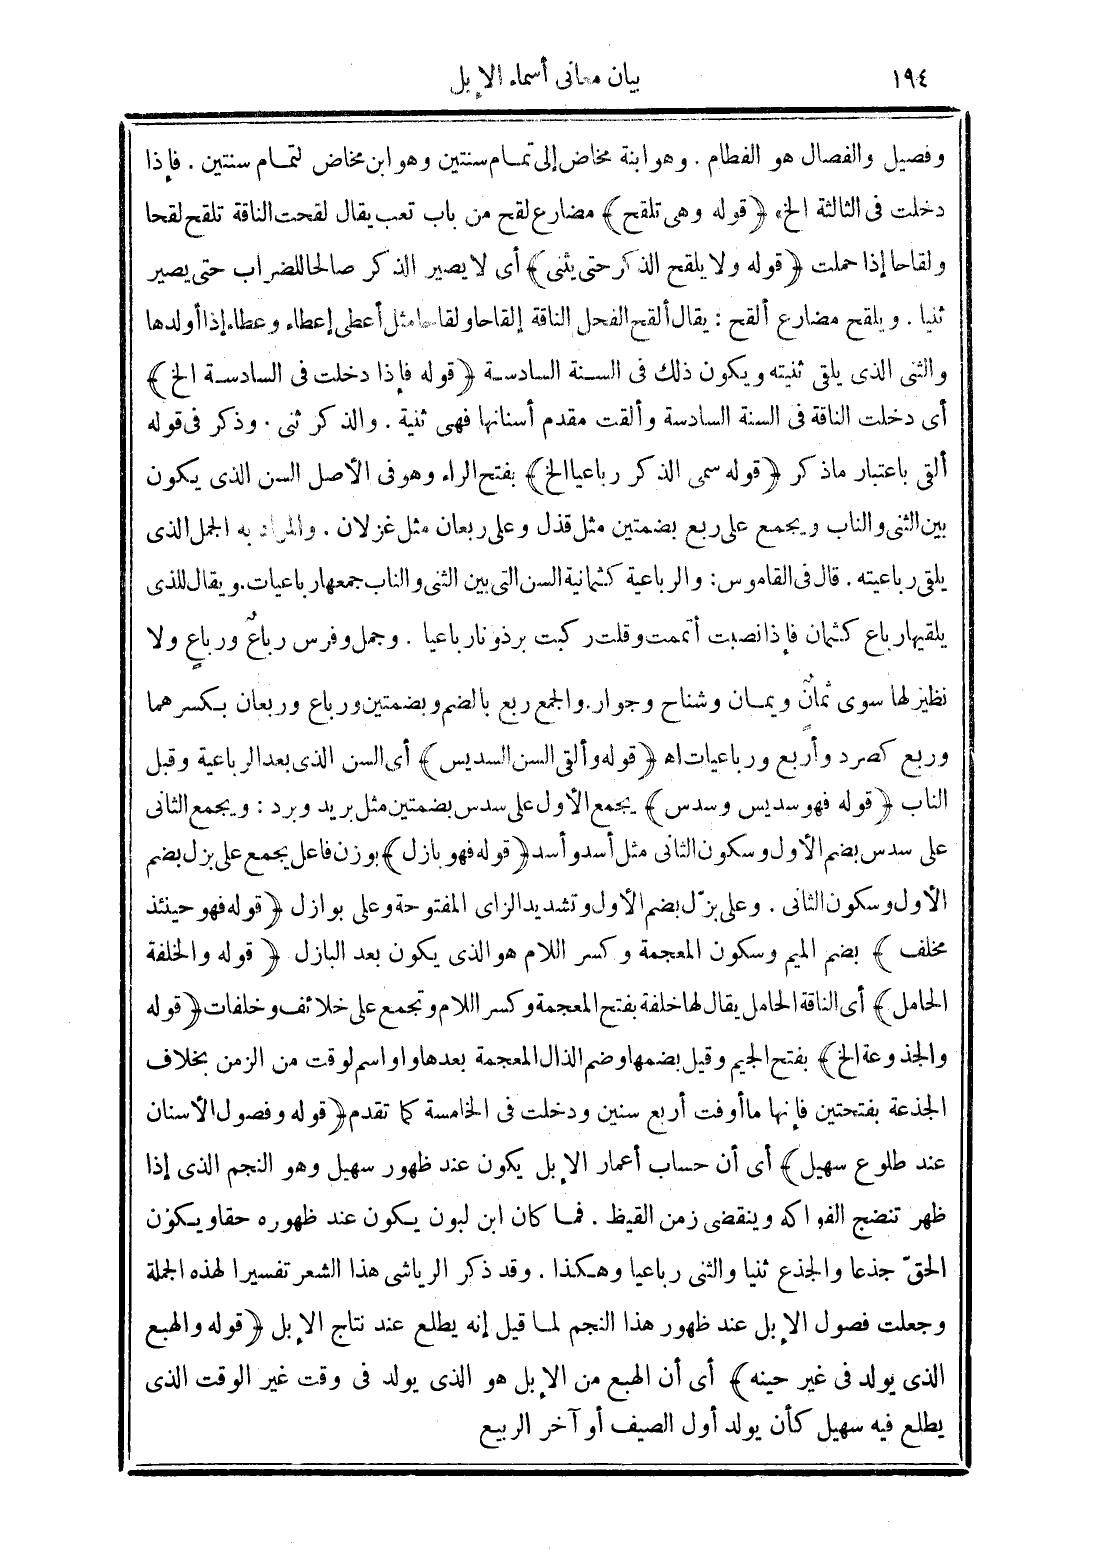 ١٩٤
بيان معانى أسماء الإبل
وفصيل والفصال هو الفطام . وهو ابنة مخاض إلى تمام سنتين وهو ابن مخاض لتمام سنتين . فإذا
دخلت فى الثالثة الخ ﴿ قوله وهى تلقح ﴾ مضارع لقح من باب تعب يقال لقحت الناقة تلقح لقحا
ولقاحا إذا حملت ﴿ قوله ولا يلقح الذكر حتى يثنى ﴾ أى لا يصير الذكر صالحا للضراب حتى يصير
ثنيا . ويلقح مضارع ألقح : يقال ألقح الفحل الناقة إلقاحا ولقاحا مثل أعطى إعطاء وعطاء إذا أولدها
والثنى الذى يلقى ثنيته ويكون ذلك فى السنة السادسة ﴿ قوله فإذا دخلت فى السادسة الخ ﴾
أى دخلت الناقة فى السنة السادسة وألقت مقدم أسنانها فهى ثنية . والذكر ثنى . وذكر فى قوله
ألقى باعتبار ماذكر ﴿ قوله سمى الذكر رباعيا الخ ﴾ بفتح الراء وهو فى الأصل السن الذى يكون
بين الثنى والناب ويجمع على ربع بضمتين مثل قذل وعلى ربعان مثل غزلان . والمراد به الجمل الذى
يلقى رباعيته . قال فى القاموس : والرباعية كثمانية السن التى بين الثنى والناب جمعها رباعيات . ويقال للذى
يلقيها رباع كثمان فإذا نصبت أتممت وقلت ركبت برذونا رباعيا . وجمل وفرس رباعٌ ورباعٍ ولا
نظير لها سوى ثمانٌ ويمان وشناح وجوار . والجمع ربع بالضم وبضمتين ورباع وربعان بكسرهما
وربع كصرد وأربع ورباعيات اه ﴿ قوله وألقى السن السديس ﴾ أى السن الذى بعد الرباعية وقبل
الناب ﴿ قوله فهو سديس وسدس ﴾ يجمع الأول على سدس بضمتين مثل بريد وبرد : ويجمع الثانى
على سدس بضم الأول وسكون الثانى مثل أسد وأسد ﴿ قوله فهو بازل ﴾ بوزن فاعل يجمع على بزل بضم
الأول وسكون الثانى . وعلى بزّل بضم الأول وتشديد الزاى المفتوحة وعلى بوازل ﴿ قوله فهو حينئذ
مخلف ﴾ بضم الميم وسكون المعجمة وكسر اللام هو الذى يكون بعد البازل ﴿ قوله والخلفة
الحامل ﴾ أى الناقة الحامل يقال لها خلفة بفتح المعجمة وكسر اللام وتجمع على خلائف وخلفات ﴿ قوله
والجذوعة الخ ﴾ بفتح الجيم وقيل بضمها وضم الذال المعجمة بعدها واو اسم لوقت من الزمن بخلاف
الجذعة بفتحتين فإنها ما أوفت أربع سنين ودخلت فى الخامسة كما تقدم ﴿ قوله وفصول الأسنان
عند طلوع سهيل ﴾ أى أن حساب أعمار الإبل يكون عند ظهور سهيل وهو النجم الذى إذا
ظهر تنضج الفواكه وينقضى زمن القيظ . فما كان ابن لبون يكون عند ظهوره حقا ويكون
الحقّ جذعا والجذع ثنيا والثنى رباعيا وهكذا . وقد ذكر الرياشى هذا الشعر تفسيرا لهذه الجملة
وجعلت فصول الإبل عند ظهور هذا النجم لما قيل إنه يطلع عند نتاج الإبل ﴿ قوله والهبع
الذى يولد فى غير حينه ﴾ أى أن الهبع من الإبل هو الذى يولد فى وقت غير الوقت الذى
يطلع فيه سهيل كأن يولد أول الصيف أو آخر الربيع